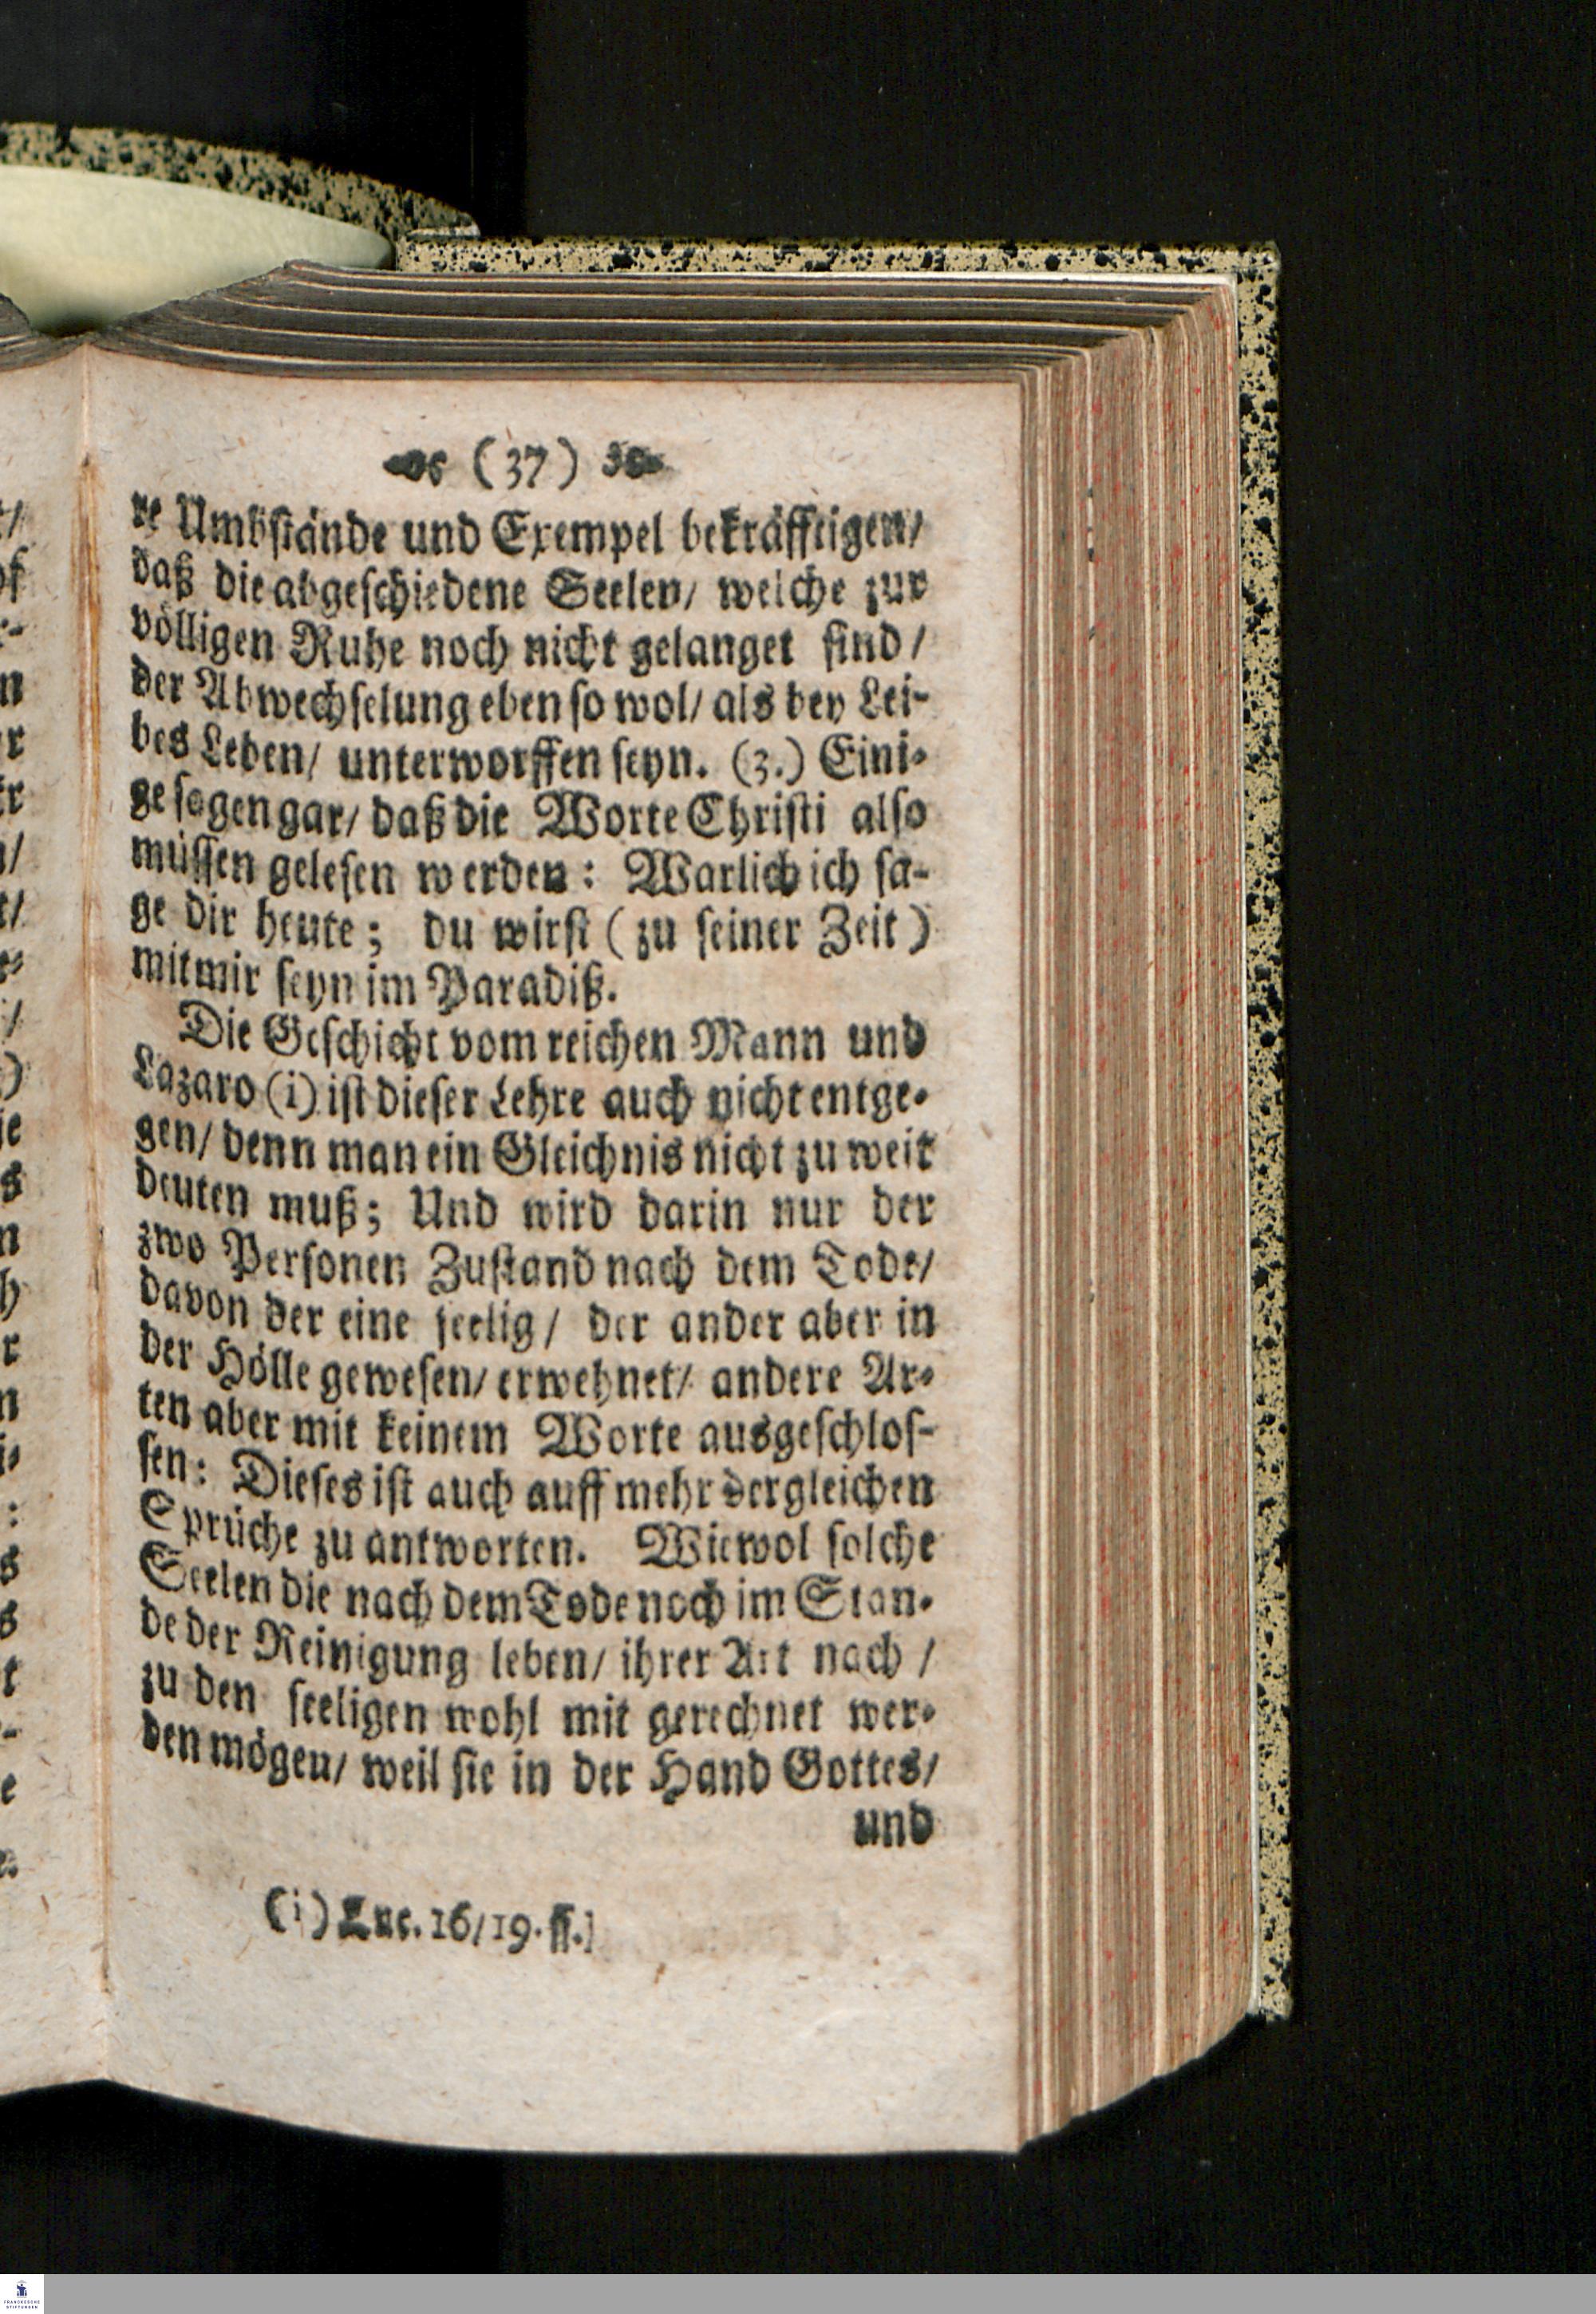 (37)
re Umbstände und Exempel bekräfftigen/
daß die abgeschiedene Seelen/ welche zur
völligen Ruhe noch nicht gelanget sind/
der Abwechselung eben so wol/ als bey Lei-
bes Leben/ unterworffen seyn. (3.) Eini-
ge sagen gar/ daß die Worte Christi also
müssen gelesen werden: Warlich ich sa-
ge dir heute; du wirst (zu seiner Zeit)
mit mir seyn im Paradiß.
Die Geschicht vom reichen Mann und
Lazaro (i) ist dieser Lehre auch nicht entge-
gen/ denn man ein Gleichnis nicht zu weit
deuten muß; Und wird darin nur der
zwo Personen Zustand nach dem Tode/
davon der eine seelig/ der ander aber in
der Hölle gewesen/ erwehnet/ andere Ar-
ten aber mit keinem Worte ausgeschlos-
sen: Dieses ist auch auff mehr dergleichen
Sprüche zu antworten. Wiewol solche
Seelen die nach dem Tode noch im Stan-
de der Reinigung leben/ ihrer Art nach/
zu den seeligen wohl mit gerechnet wer-
den mögen/ weil sie in der Hand Gottes/
und
(i) Luc. 16/19. ff.]
FRANCKESCHE
STIFTUNGEN